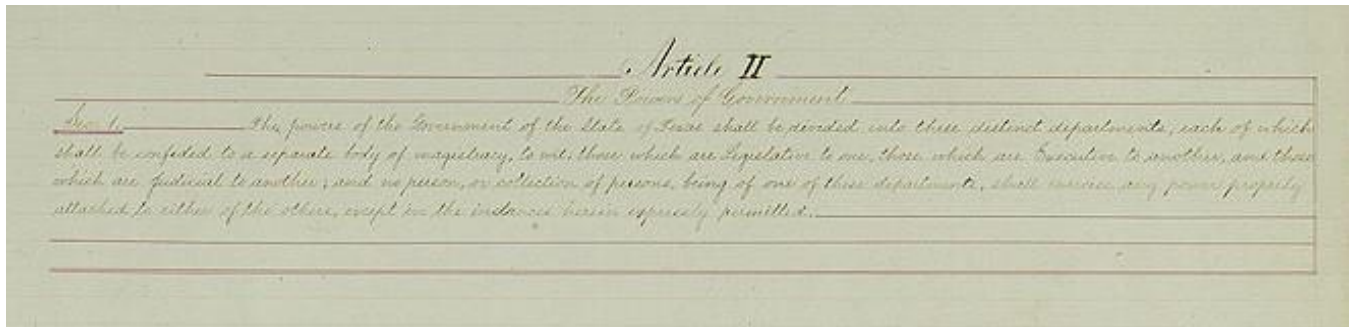 Article II
The Powers of Government
Sec. 1. The powers of the Government of the State of Texas shall be divided into three distinct departments, each of which
shall be confided to a separate body of magistracy, to wit; those which are Legislative to one, those which are Executive to another, and those
which are Judicial to another; and no person, or collection of persons, being of one of these departments, shall exercise any power properly
attached to either of the others, except in the instances herein expressly permitted.